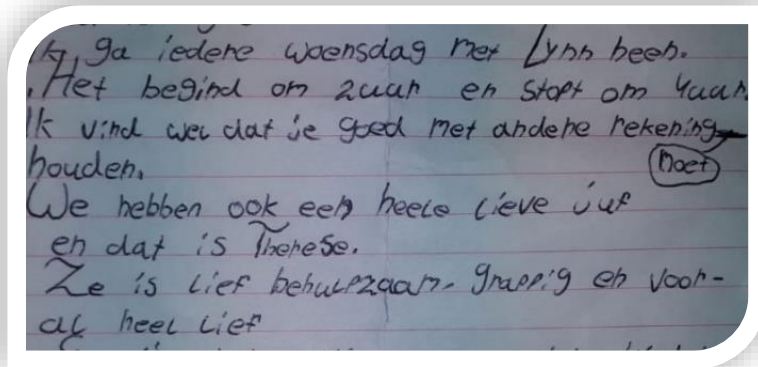 Ik ga iedere woensdag met Lynn heen.
Het begind om 2uur en stopt om 4uur.
Ik vind wel dat je goed met andere rekening
houden. moet
We hebben ook een heele lieve juf
en dat is Therese.
Ze is lief behulpzaam. grappig en voor-
al heel lief